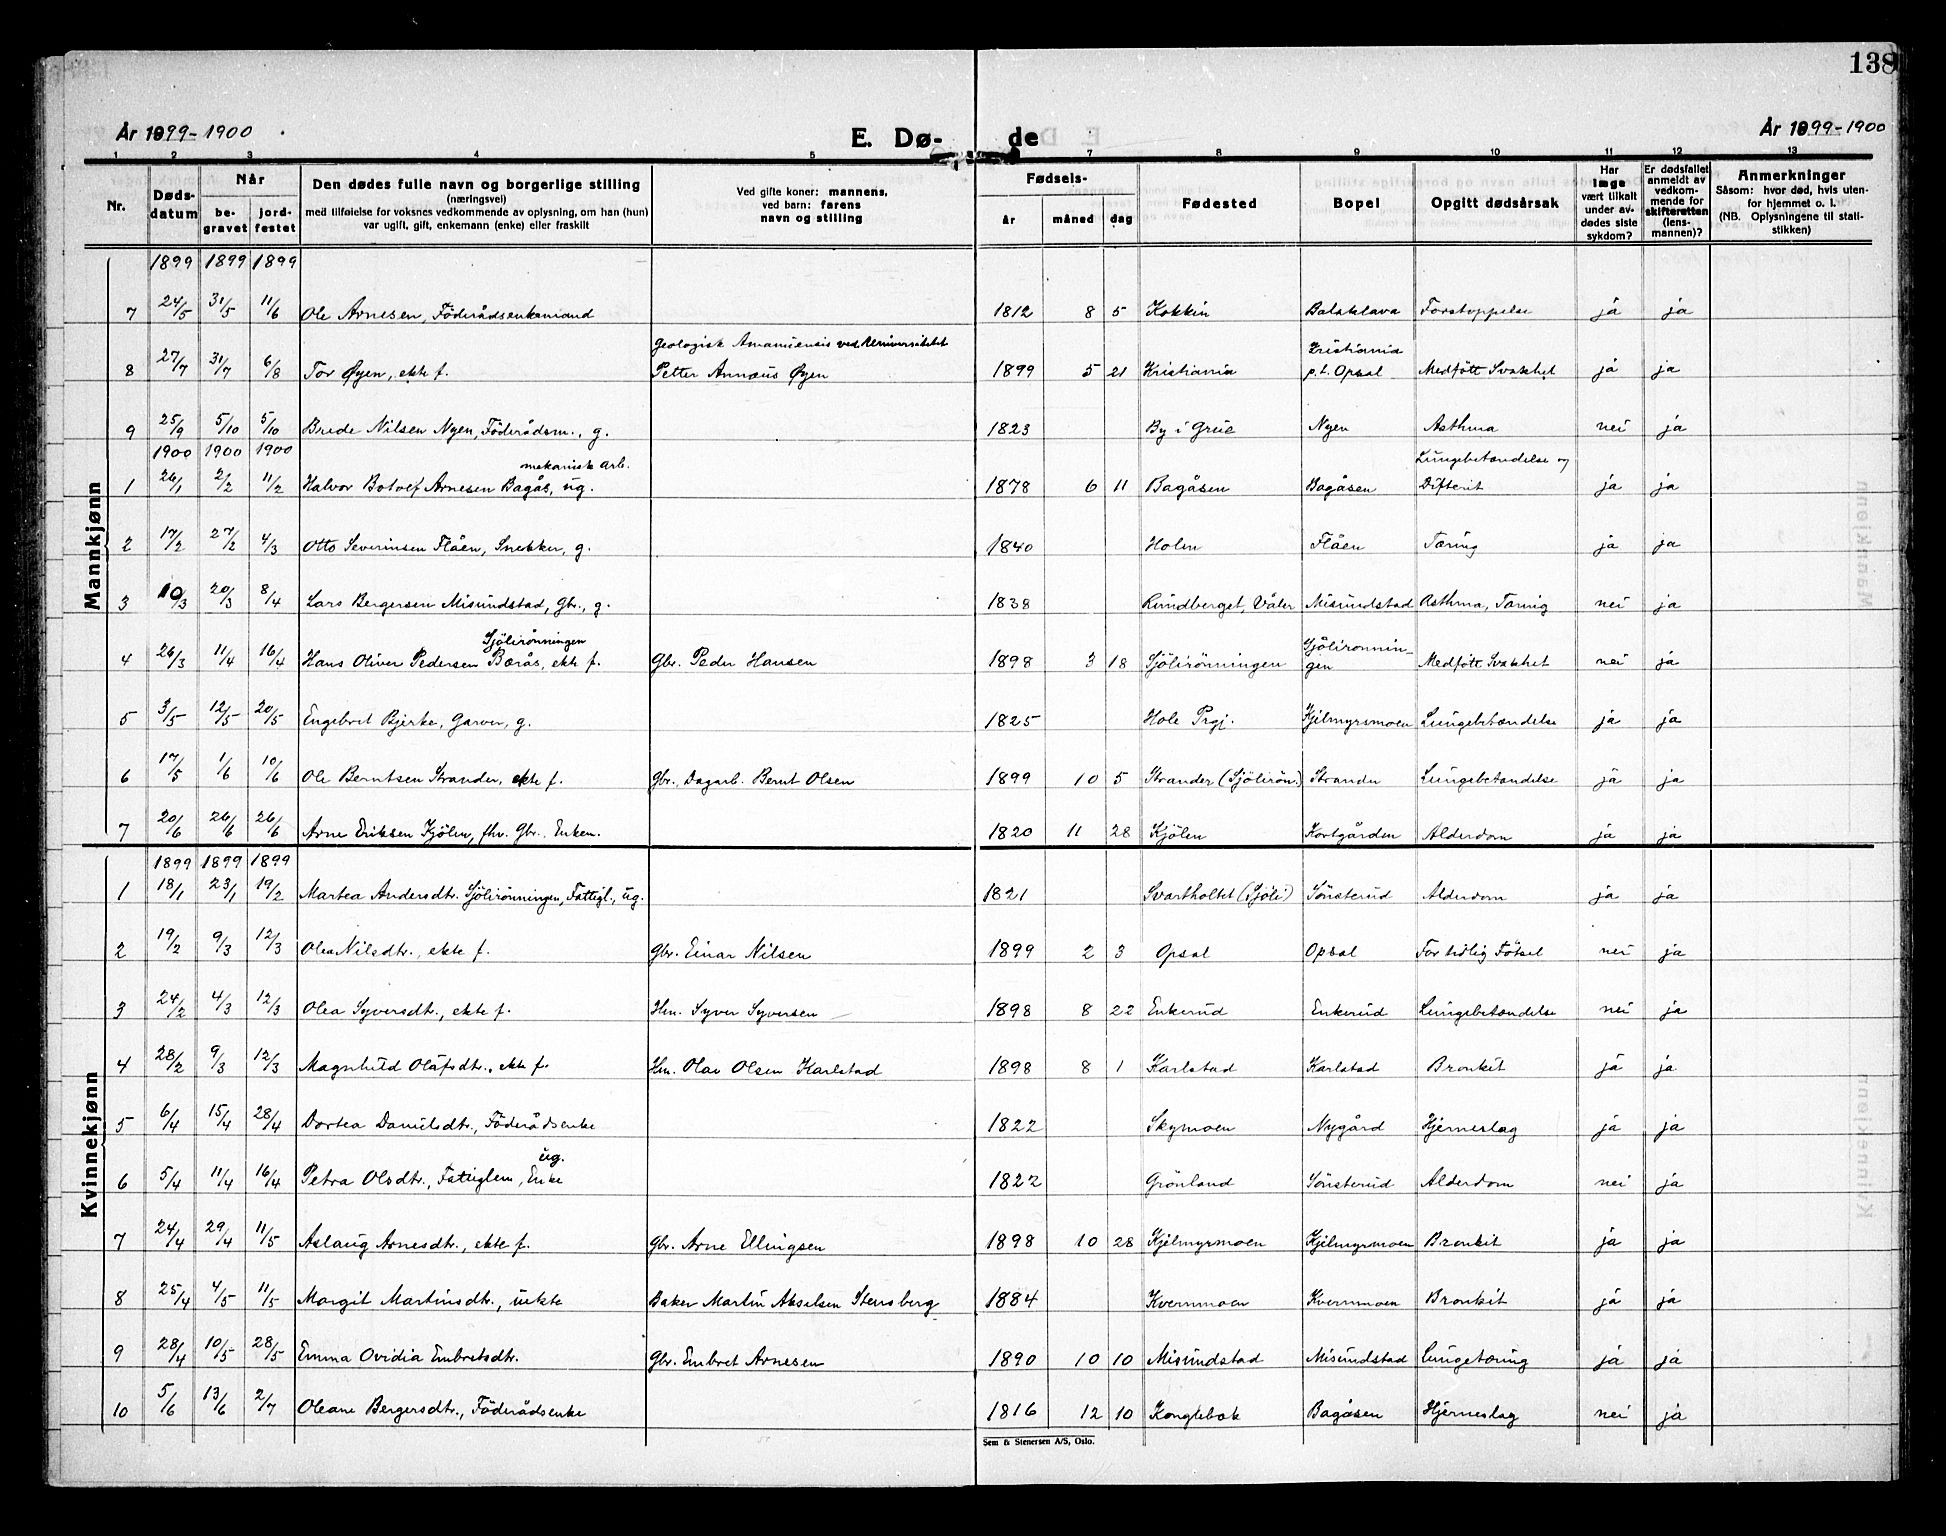 138
År 1899-1900
E. Dø-
de
År 1899-1900
1 2 3 4 5 7 8 9 10 11 12 13
Nr.
Døds-
datum
Når
be-
gravet
jord-
festet
Den dødes fulle navn og borgerlige stilling
(næringsvei)
med tilføielse for voksnes vedkommende av oplysning, om han (hun)
var ugift, gift, enkemann (enke) eller fraskilt
Ved gifte koner: mannens,
ved barn: farens
navn og stilling
Fødsels-
år måned dag
Fødested
Bopel
Opgitt dødsårsak
Har
læge
vært tilkalt
under av-
dødes siste
sykdom?
Er dødsfallet
anmeldt av
vedkom-
mende for
skifteretten
(lens-
mannen)?
Anmerkninger
Såsom: hvor død, hvis uten-
for hjemmet o. l.
(NB. Oplysningene til stati-
stikken)
Mannkjønn
1899 1899 1899
7 24/5 31/5 11/6 Ole Arnesen, Föderådsenkemand 1812 8 5 Kokkin Balaklava Forstoppelse ja ja
Geologisk Amanuensis ved Universitetet Kristiania
8 27/7 31/7 6/8 Tor Øyen, ekte f. Petter Annæus Øyen 1899 5 21 Kristiania p.t. Opsal Medfött Svakhet ja ja
9 25/9 5/10 5/10 Brede Nilsen Nyen, Föderådsm., g. 1823 By i Grue Nyen Asthma nei ja
1900 1900 1900
mekanisk arb. Lungebetændelse og
1 26/1 2/2 11/2 Halvor Botolf Arnesen Bagås, ug. 1878 6 11 Bagåsen Bagåsen Difterit ja ja
2 17/2 27/2 4/3 Otto Severinsen Flåen, Snekker, g. 1840 Holen Flåen Tæring ja ja
3 10/3 20/3 8/4 Lars Bergersen Misundstad, Gbr., g. 1838 Rundberget, Våler Misundstad Asthma, Tæring nei ja
Sjölirönningen Sjölirönnin-
4 26/3 11/4 16/4 Hans Oliver Pedersen Berås, ekte f. Gbr. Peder Hansen 1898 3 18 Sjölirönningen gen Medfött Svakhet nei ja
5 3/5 12/5 20/5 Engebret Bjerke, Garver, g. 1825 Hole Prgj. Kjelmyrsmoen Lungebetændelse ja ja
6 17/5 1/6 10/6 Ole Berntsen Strander, ekte f. Gbr., Dagarb. Bernt Olsen 1899 10 5 Strander (Sjölirön.) Strander Lungebetændelse ja ja
7 20/6 26/6 26/6 Arne Eriksen Kjölen, fhv. Gbr. Enkem. 1820 11 28 Kjölen Kortgården Alderdom ja ja
Kvinnekjønn
1899 1899 1899
1 18/1 23/1 19/2 Martea Andersdtr. Sjölirönningen, Fattigl., ug. 1821 Svartholtet (Sjöli) Sönsterud Alderdom ja ja
2 19/2 9/3 12/3 Olea Nilsdtr., ekte f. Gbr. Einar Nilsen 1899 2 3 Opsal Opsal For tidlig Fötsel nei ja
3 24/2 4/3 12/3 Olea Syversdtr., ekte f. Hm. Syver Syversen 1898 8 22 Enkerud Enkerud Lungebetændelse nei ja
4 28/2 9/3 12/3 Magnhild Olafsdtr., ekte f. Hm. Olav Olsen Karlstad 1898 8 1 Karlstad Karlstad Bronkit ja ja
5 6/4 15/4 28/4 Dortea Danielsdtr., Föderådsenke 1822 Skymoen Nygård Hjerneslag ja ja
ug.
6 5/4 11/4 16/4 Petra Olsdtr., Fattiglem, Enke 1822 Grönland Sönsterud Alderdom nei ja
7 24/4 29/4 11/5 Aslaug Arnesdtr., ekte f. Gbr. Arne Ellingsen 1898 10 28 Kjelmyrmoen Kjelmyrmoen Bronkit ja ja
8 25/4 4/5 11/5 Margit Martinsdtr., uekte Baker Martin Akselsen Stensberg 1884 Kvernmoen Kvernmoen Bronkit ja ja
9 28/4 10/5 28/5 Emma Ovidia Embretsdtr. Gbr. Embret Arnesen 1890 10 10 Misundstad Misundstad Lungetæring ja ja
10 5/6 13/6 2/7 Oleane Bergersdtr., Föderådsenke 1816 12 10 Konglebæk Bagåsen Hjerneslag nei ja
Sem & Stenersen A/S, Oslo.